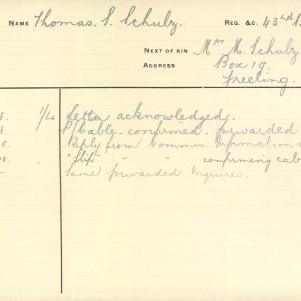 NAME Thomas. S. Schulz. REG. &C. 43rd B
NEXT OF KIN Mrs M. Schulz
ADDRESS Box 19.
Freeling.
8. 1/40 Letter acknowledged.
8. Cable confirmed. forwarded
8. Reply from Commrs. Information
8. "slip" - " - confirming cab
- Same forwarded Inquires.